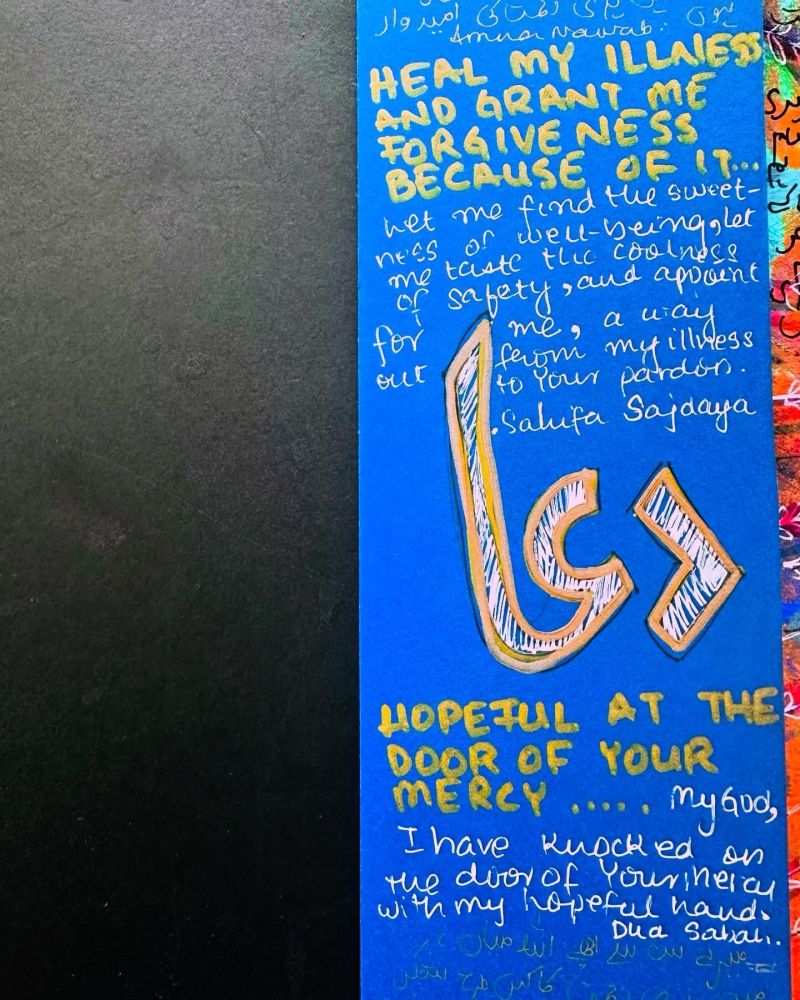 امیدوار
HEAL MY ILLNESS
AND GRANT ME
FORGIVENESS
BECAUSE OF IT...
Let me find the sweet-
ness of well-being, let
me taste the coolness
of safety, and appoint
for me, a way
out from my illness
to Your pardon.
. Sahifa Sajdaya
دعا
HOPEFUL AT THE
DOOR OF YOUR
MERCY ..... My God,
I have knocked on
the door of Your mercy
with my hopeful hand.
Dua Sabah.